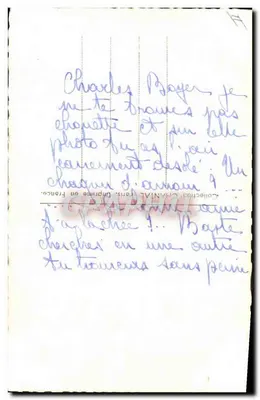 Charles Boyer je
ne te trouves pas
chouette et sur cette
photo tu as l'air
desolé. Un
chagrin d'amour ?...
amie
t'a lachée ?.. Baste
cherches en une autre
tu trouveras sans peine